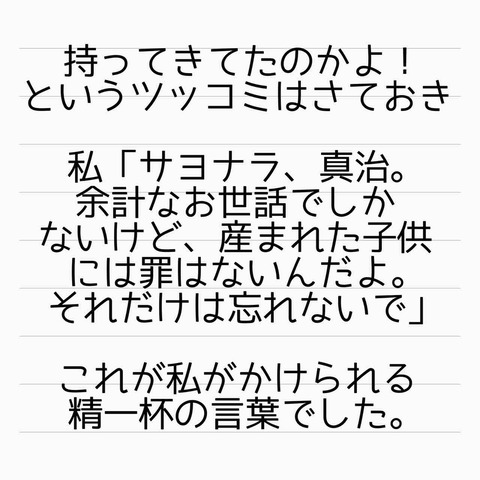 持ってきてたのかよ！
というツッコミはさておき
私「サヨナラ、真治。
余計なお世話でしか
ないけど、産まれた子供
には罪はないんだよ。
それだけは忘れないで」
これが私がかけられる
精一杯の言葉でした。